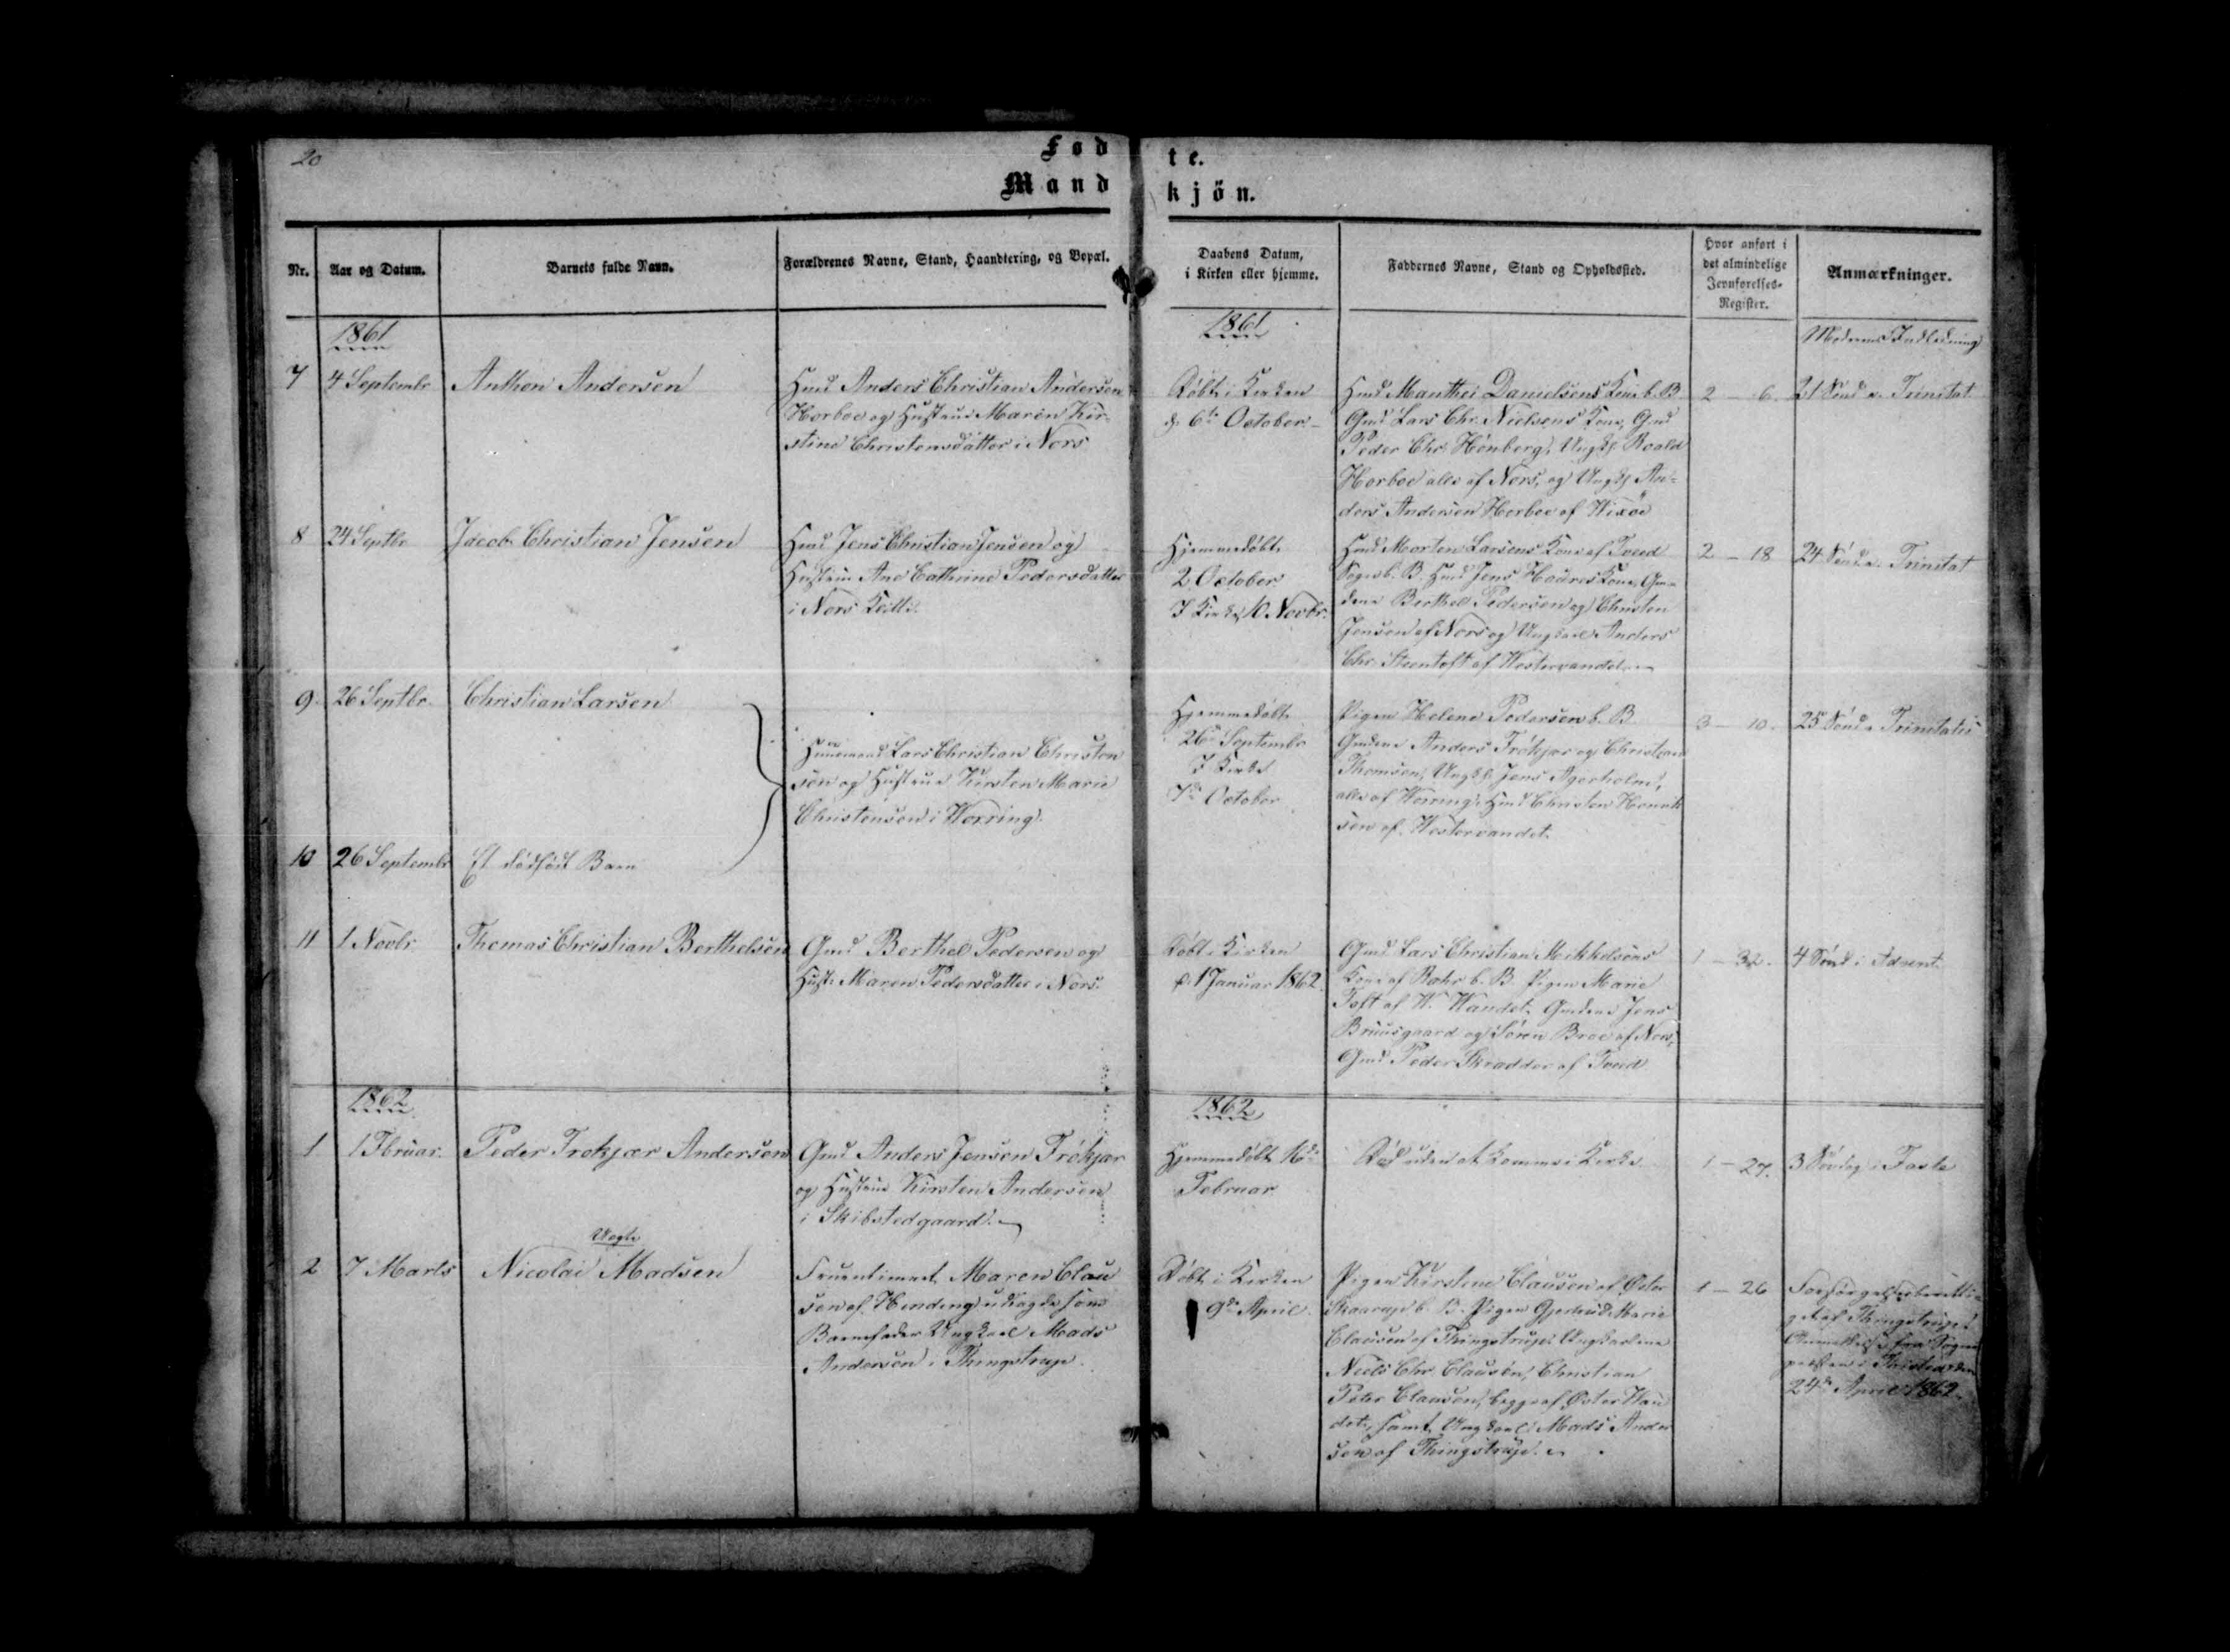 20
Fød
te.
Mand
kjön.
Nr.
Aar og Datum.
Barnets fulde Navn.
Forældrenes Navne, Stand, Haandtering, og Bopæl.
Daabens Datum,
i Kirken eller hjemme.
Faddernes Navne, Stand og Opholdssted.
Hvor anført i
det almindelige
Jevnførelses-
Register.
Anmærkninger.
1861
1861
Moderens Indledning
7
4 Septembr
Anthon Andersen
Hmd Anders Christian Andersen
Horboe og Hustrue Maren Kir-
stine Christensdatter i Nors
Døbt i Kirken
d. 6te October
Hmd Manthei Danielsens Kone b. B.
Gmd Lars Chr. Nielsens Kone, Gmd
Peder Chr. Hønborg, Ungk. Roald
Horboe alle af Nors, og Ungk. An-
ders Andersen Horboe af Wixøe
2 - 6.
21 Sønd e. Trinitat
8
24 Septbr
Jacob Christian Jensen
Hmd Jens Christian Jensen og
Hustrue Ane Cathrine Pedersdatter
i Nors
Hjemmedøbt
2 October
I Kirke 10 Novbr.
Hmd Morten Larsens Kone af Tveed
Sogn b. B. Hmd Jens Kone, Gm-
dene Berthel Pedersen og Christen
Jensen af Nors og Ungkarl Anders
Chr. Steentoft af Westervandet.
2 - 18
24 Sønd. e. Trinitat
9
26 Septbr.
Christian Larsen
Huusmand Lars Christian Christen
sen og Hustrue Kirsten Marie
Christensen i Worring.
Hjemmedøbt
26de Septembr
I Kirke
7de October
Pigen Helene Pedersen b. B.
Gmdene Anders Frökjær og Christian
Thomsen, Ungk. Jens Agerholm,
alle af Worring, Hmd Christen Henrik
sen af Westervandet.
3 - 10.
25 Sønd e Trinitatis
10
26 Septembr
Et dødfødt Barn
11
1 Novbr.
Thomas Christian Berthelsen
Gmd Berthel Pedersen og
Hust: Maren Pedersdatter i Nors.
Døbt i Kirken
d. 1 Januar 1862.
Gmd Lars Christian Mikkelsens
Kone af Rær b. B. Pigen Marie
Toft af W. Wandet. Gmdene Jens
Bruusgaard og Søren Broe af Nors,
Gmd Peder Skrædder af Tveed
1 - 32.
4 Sønd i Advent.
1862
1862
1
1 Fbruar.
Peder Frokjær Andersen
Gmd Anders Jensen Frökjær
og Hustrue Kirsten Andersen
i Skibstedgaard.
Hjemmedøbt 16de
Februar
Død uden at komme i Kirke
1 - 27.
3 Søndag i Faste
2
7 Marts
Uægte
Nicolai Madsen
Fruentimmet Maren Clau
sen af Hinding udlagde som
Barnefader Ungkarl Mads
Andersen i Thingstrup.
Døbt i Kirken
9de April.
Pigen Kirstine Clausen af Øster
Skaarup b. B. Pigen Gjertrud Marie
Clausen af Thingstrup, Ungkarlene
Niels Chr. Clausen, Christian
Peter Clausen, begge af Øster Wan
det, samt Ungkarl Mads Ander
sen af Thingstrup.
1 - 26
Forsørgelsesberetti-
get af Thingstrup.
Anmeldelse fra Sogne
præsten i Thisted den
24de April 1862.